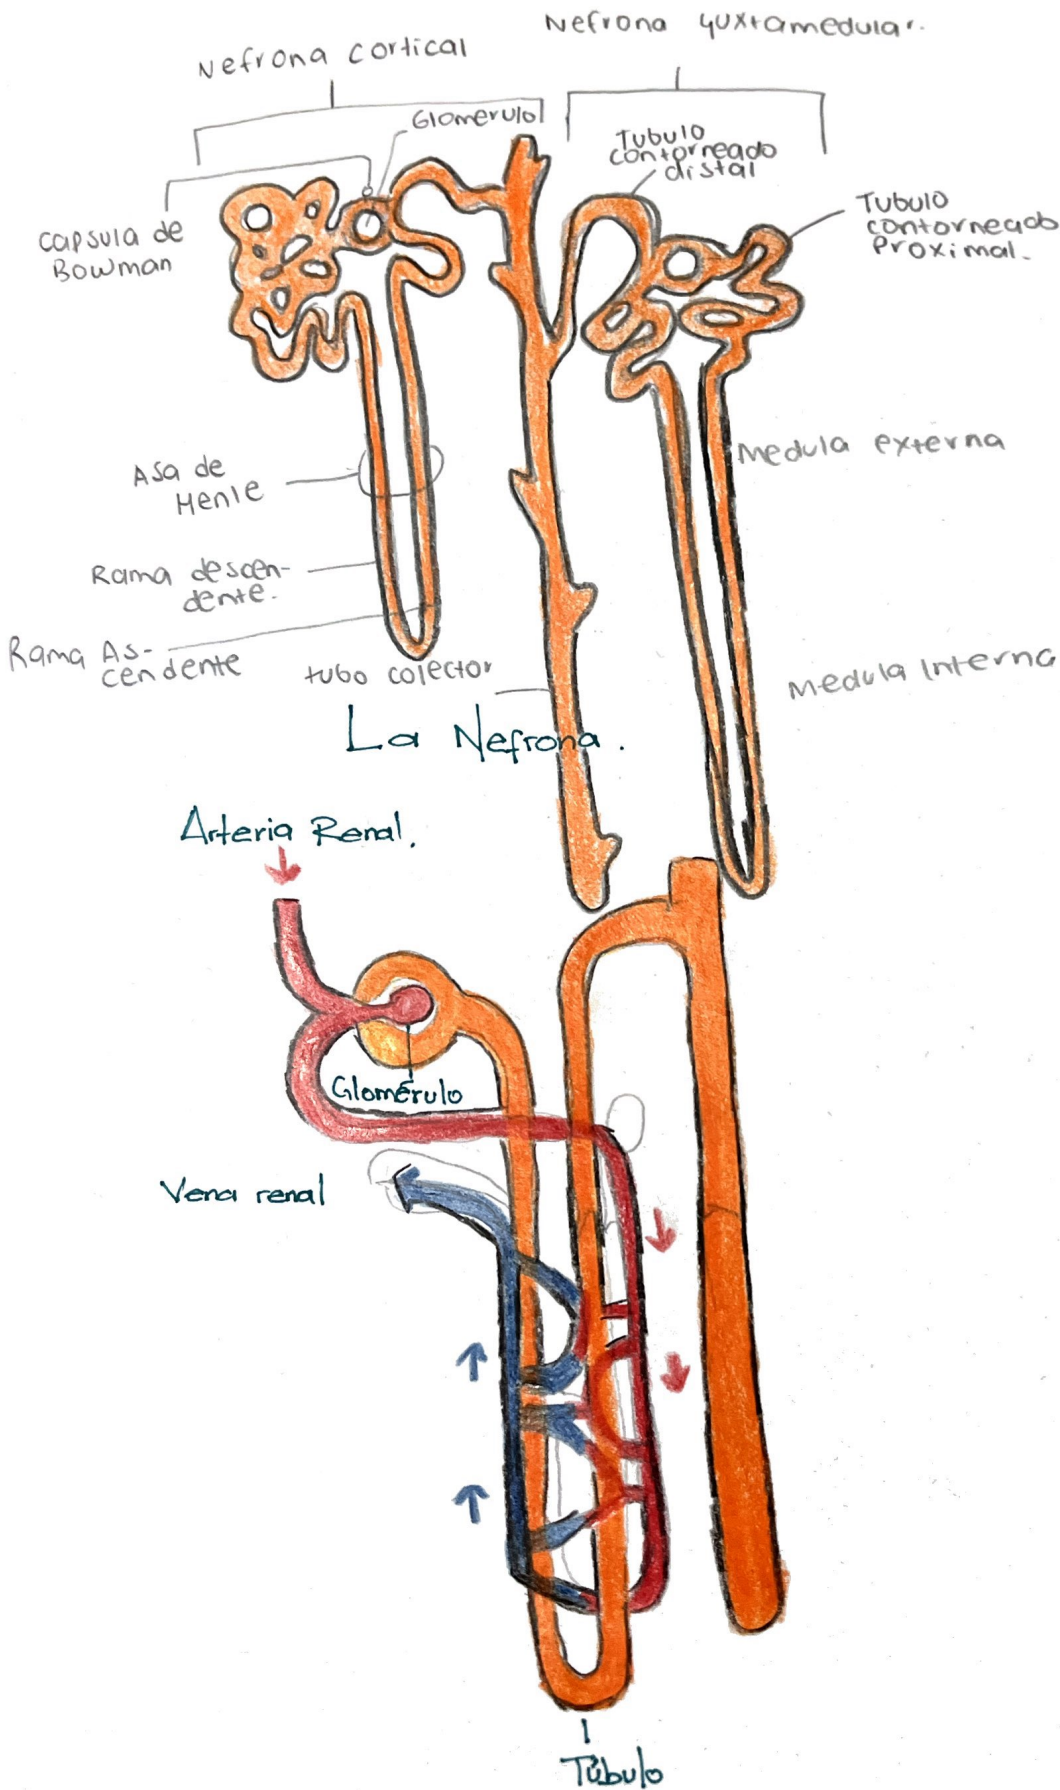 Nefrona cortical
Nefrona yuxtamedular.
Glomerulol
Tubulo
contorneado
distal
Tubulo
contorneado
Proximal.
capsula de
Bowman
Medula externa
Asa de
Henle
Rama descen-
dente.
Rama As-
cendente
tubo colector
Medula Interna
La Nefrona.
Arteria Renal.
Glomérulo
Vena renal
Túbulo